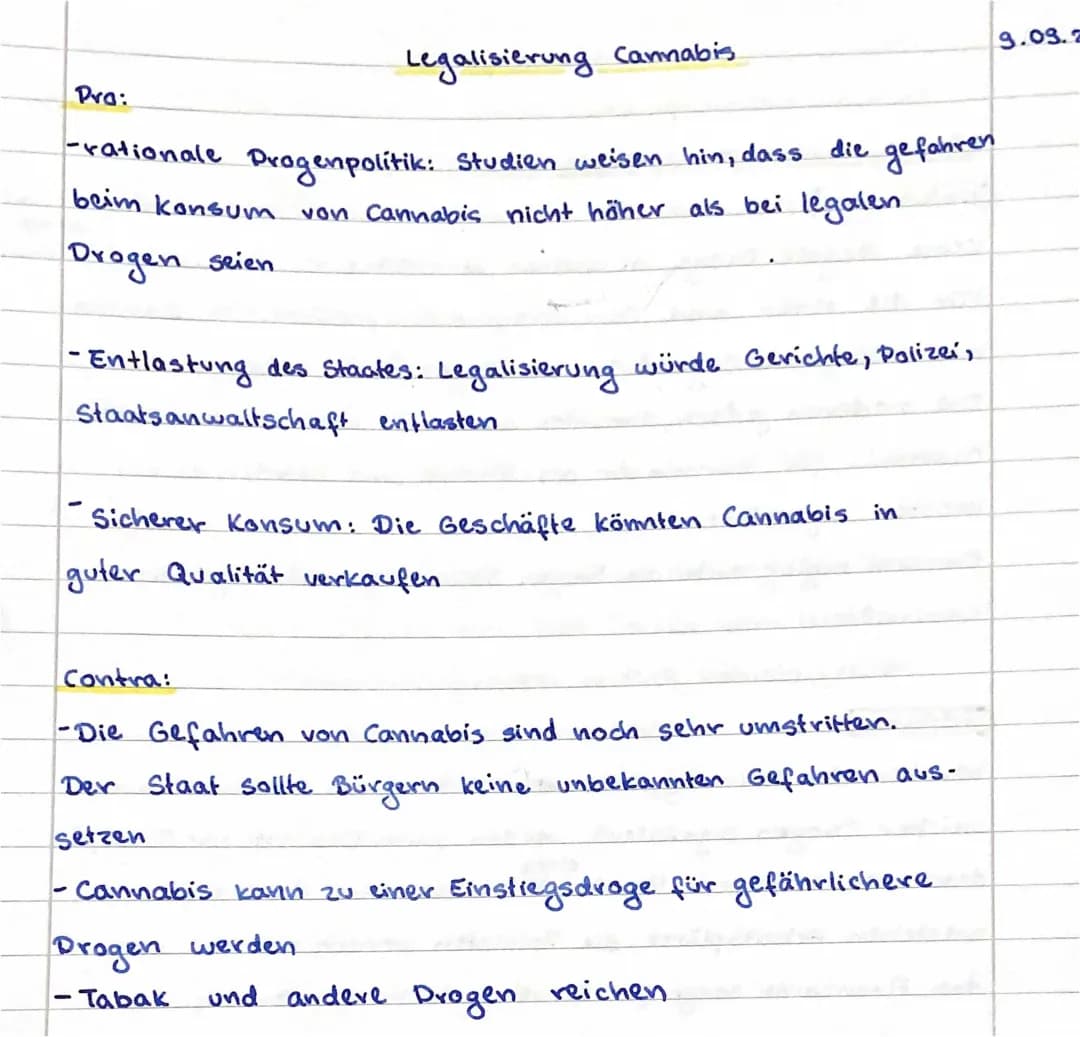 Legalisierung Cannabis
9.03.
Pro:
-rationale Drogenpolitik: Studien weisen hin, dass die gefahren
beim Konsum von Cannabis nicht höher als bei legalen
Drogen seien
- Entlastung des Staates: Legalisierung würde Gerichte, Polizei,
Staatsanwaltschaft entlasten
- Sicherer Konsum: Die Geschäfte könnten Cannabis in
guter Qualität verkaufen
Contra:
-Die Gefahren von Cannabis sind noch sehr umstritten.
Der Staat sollte Bürgern keine unbekannten Gefahren aus-
setzen
- Cannabis kann zu einer Einstiegsdroge für gefährlichere
Drogen werden
- Tabak und andere Drogen reichen